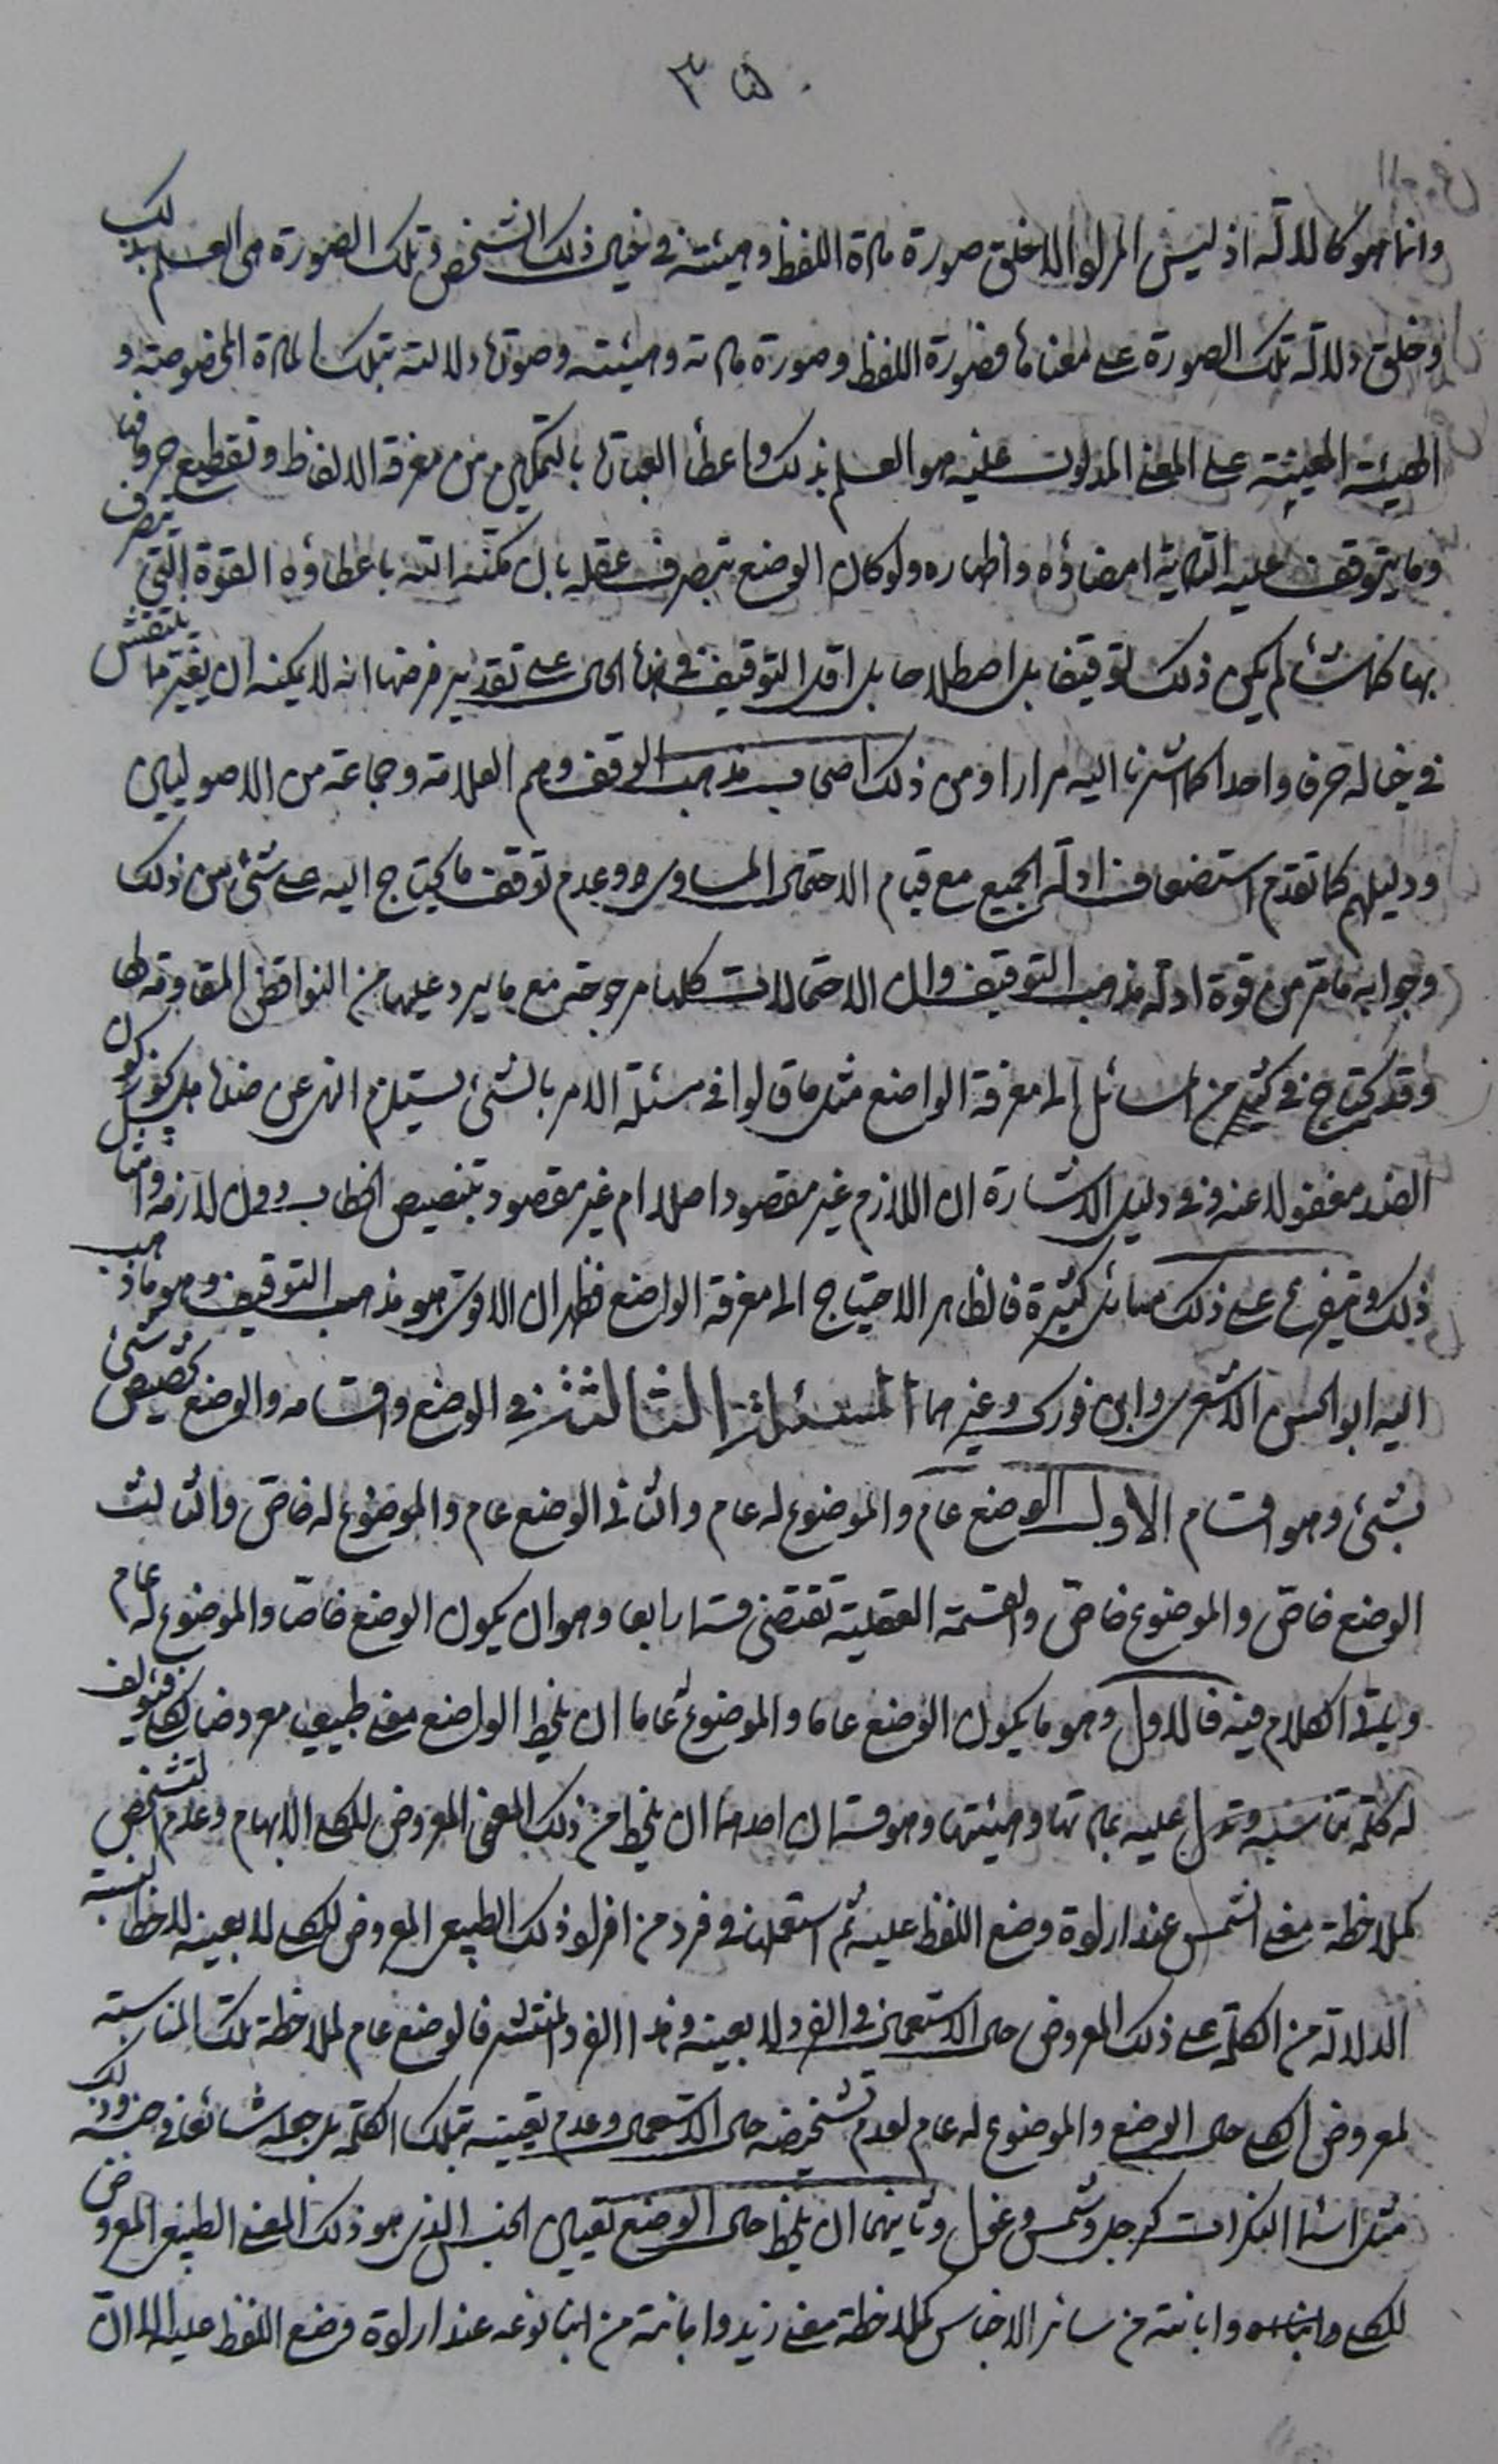 ٣٥٠
وانما هو كالدلالة اذ ليس المراد الا خلق صورة مادة اللفظ وهيئته في خيال ذلك الشخص وتلك الصورة هى العلم بذلك
وخلق دلالة تلك الصورة على معناها فصورة اللفظ وصورة مادته وهيئته وصورة دلالته بتلك المادة المخصوصة و
الهيئة المعينة على المعنى المدلول عليه هو العلم بذلك واعطاء العبارة بالتمكين من معرفة الالفاظ وتقطيع حروفها
وما يتوقف عليه التأدية امضاؤه واظهاره ولو كان الوضع بتصرف عقله بان مكنه الله باعطاؤه القوة التى يتصرف
بها كلما شاء لم يكن ذلك توقيفا بل اصطلاحا بل اقل التوقيف في هذا الحال على تقدير فرضها انه لا يمكنه ان يغير ما ينتقش
في خياله حرفا واحدا كما اشرنا اليه مرارا ومن ذلك اصحاب مذهب الوقف وهم العلامة وجماعة من الاصوليين
ودليلهم كما تقدم استضعاف ادلة الجميع مع قيام الاحتمال المساوى وعدم توقف ما يحتاج اليه على شئ من ذلك
وجوابه ما مر من قوة ادلة مذهب التوقيف وان الاحتمالات كلها مرجوحة مع ما يرد عليها من النواقض المقاومة لها
وقد يحتاج في كثير من المسائل الى معرفة الواضع مثل ما قالوا في مسئلة الامر بالشئ يستلزم النهى عن ضده هل يجوز كون
الضد مغفولا عنه وفى دليل الاشارة ان اللازم غير مقصود اصلا ام غير مقصود بتنصيص الخطاب دون لازمه وامثال
ذلك ويتفرع على ذلك مسائل كثيرة فالظاهر الاحتياج الى معرفة الواضع فظهر ان الاقوى هو مذهب التوقيف وهو ما ذهب
اليه ابو الحسن الاشعرى وابن فورك وغيرهما المسئلة الثالثة في الوضع واقسامه والوضع تخصيص شئ
بشئ وهو اقسام الاول الوضع عام والموضوع له عام والثانى الوضع عام والموضوع له خاص والثالث
الوضع خاص والموضوع خاص والقسمة العقلية تقتضى قسما رابعا وهو ان يكون الوضع خاصا والموضوع له عام
ويأتى الكلام فيه فالاول وهو ما يكون الوضع عاما والموضوع عاما ان يلحظ الواضع معنى طبيعيا معروضا للكلى فيؤلف
له كلمة تناسبه وتدل عليه بمادتها وهيئتها وهو قسمان احدهما ان يلحظ من ذلك المعنى المعروض للكلى الابهام وعدم التشخص
كملاحظة معنى الشمس عند ارادة وضع اللفظ عليه ثم استعماله في فرد من افراد ذلك الطبيعى المعروض للكلى لا بعينه لملاحظة نسبة
الدلالة من الكلمة على ذلك المعروض حال الاستعمال في الفرد لا بعينه وهذا الفرد المنتشر فالوضع عام لملاحظة تلك المناسبة
لمعروض الكلى حال الوضع والموضوع له عام لعدم تشخصه حال الاستعمال وعدم تعيينه بتلك الكلمة بل جعله شائعا في جنسه وذلك
مثل اسماء النكرات كرجل وشمس وغول وثانيهما ان يلحظ حال الوضع تعيين الجنس الذى هو ذلك المعنى الطبيعى المعروض
للكلى وابانته من سائر الاجناس كملاحظة معنى زيد وابانته من ابناء نوعه عند ارادة وضع اللفظ عليه الا ان